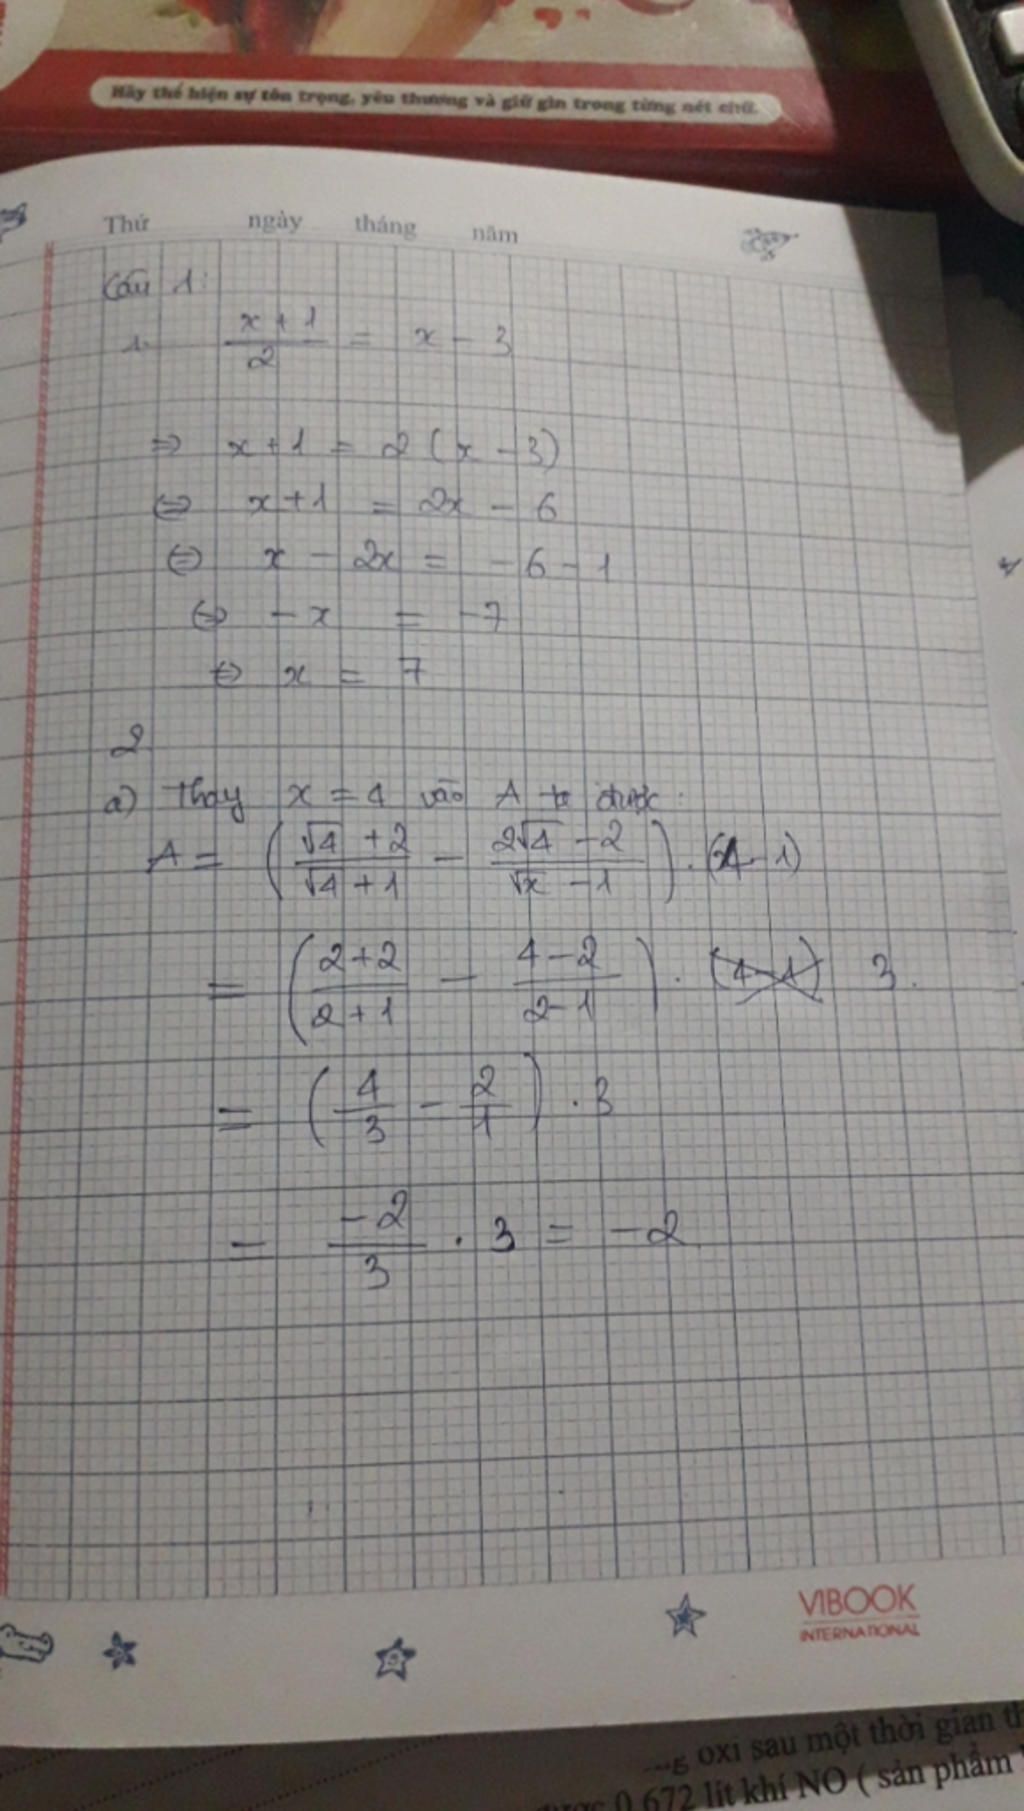 Hãy thể hiện sự tôn trọng, yêu thương và giữ gìn trong từng nét chữ.
Thứ ngày tháng năm
Câu 1:
1. \frac{x+1}{2} = x - 3
=> x+1 = 2(x - 3)
<=> x+1 = 2x - 6
<=> x - 2x = -6-1
<=> -x = -7
<=> x = 7
2
a) Thay x = 4 vào A ta được:
A = (\frac{√4+2}{√4+1} - \frac{2√4-2}{√x-1}) . (4-1)
= (\frac{2+2}{2+1} - \frac{4-2}{2-1}) . (4-1) 3.
= (\frac{4}{3} - \frac{2}{1}) . 3
= \frac{-2}{3} . 3 = -2
VIBOOK
INTERNATIONAL
oxi sau một thời gian
0,672 lít khí NO ( sản phẩm